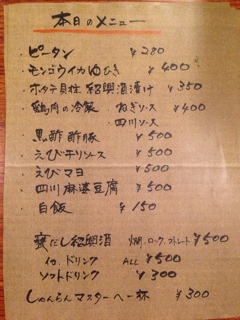 本日のメニュー
ピータン ¥280
・モンゴウイカゆびき ¥400
・ホタテ貝柱 紹興酒漬け ¥350
・鶏肉の冷製 ねぎソース ¥400
四川ソース
・黒酢酢豚 ¥500
・えびチリソース ¥500
・えびマヨ ¥500
・四川麻婆豆腐 ¥500
・白飯 ¥150
甕だし紹興酒 燗、ロック、ストレート ¥500
他、ドリンク ALL ¥500
ソフトドリンク ¥300
しゅんらんマスターへ一杯 ¥300